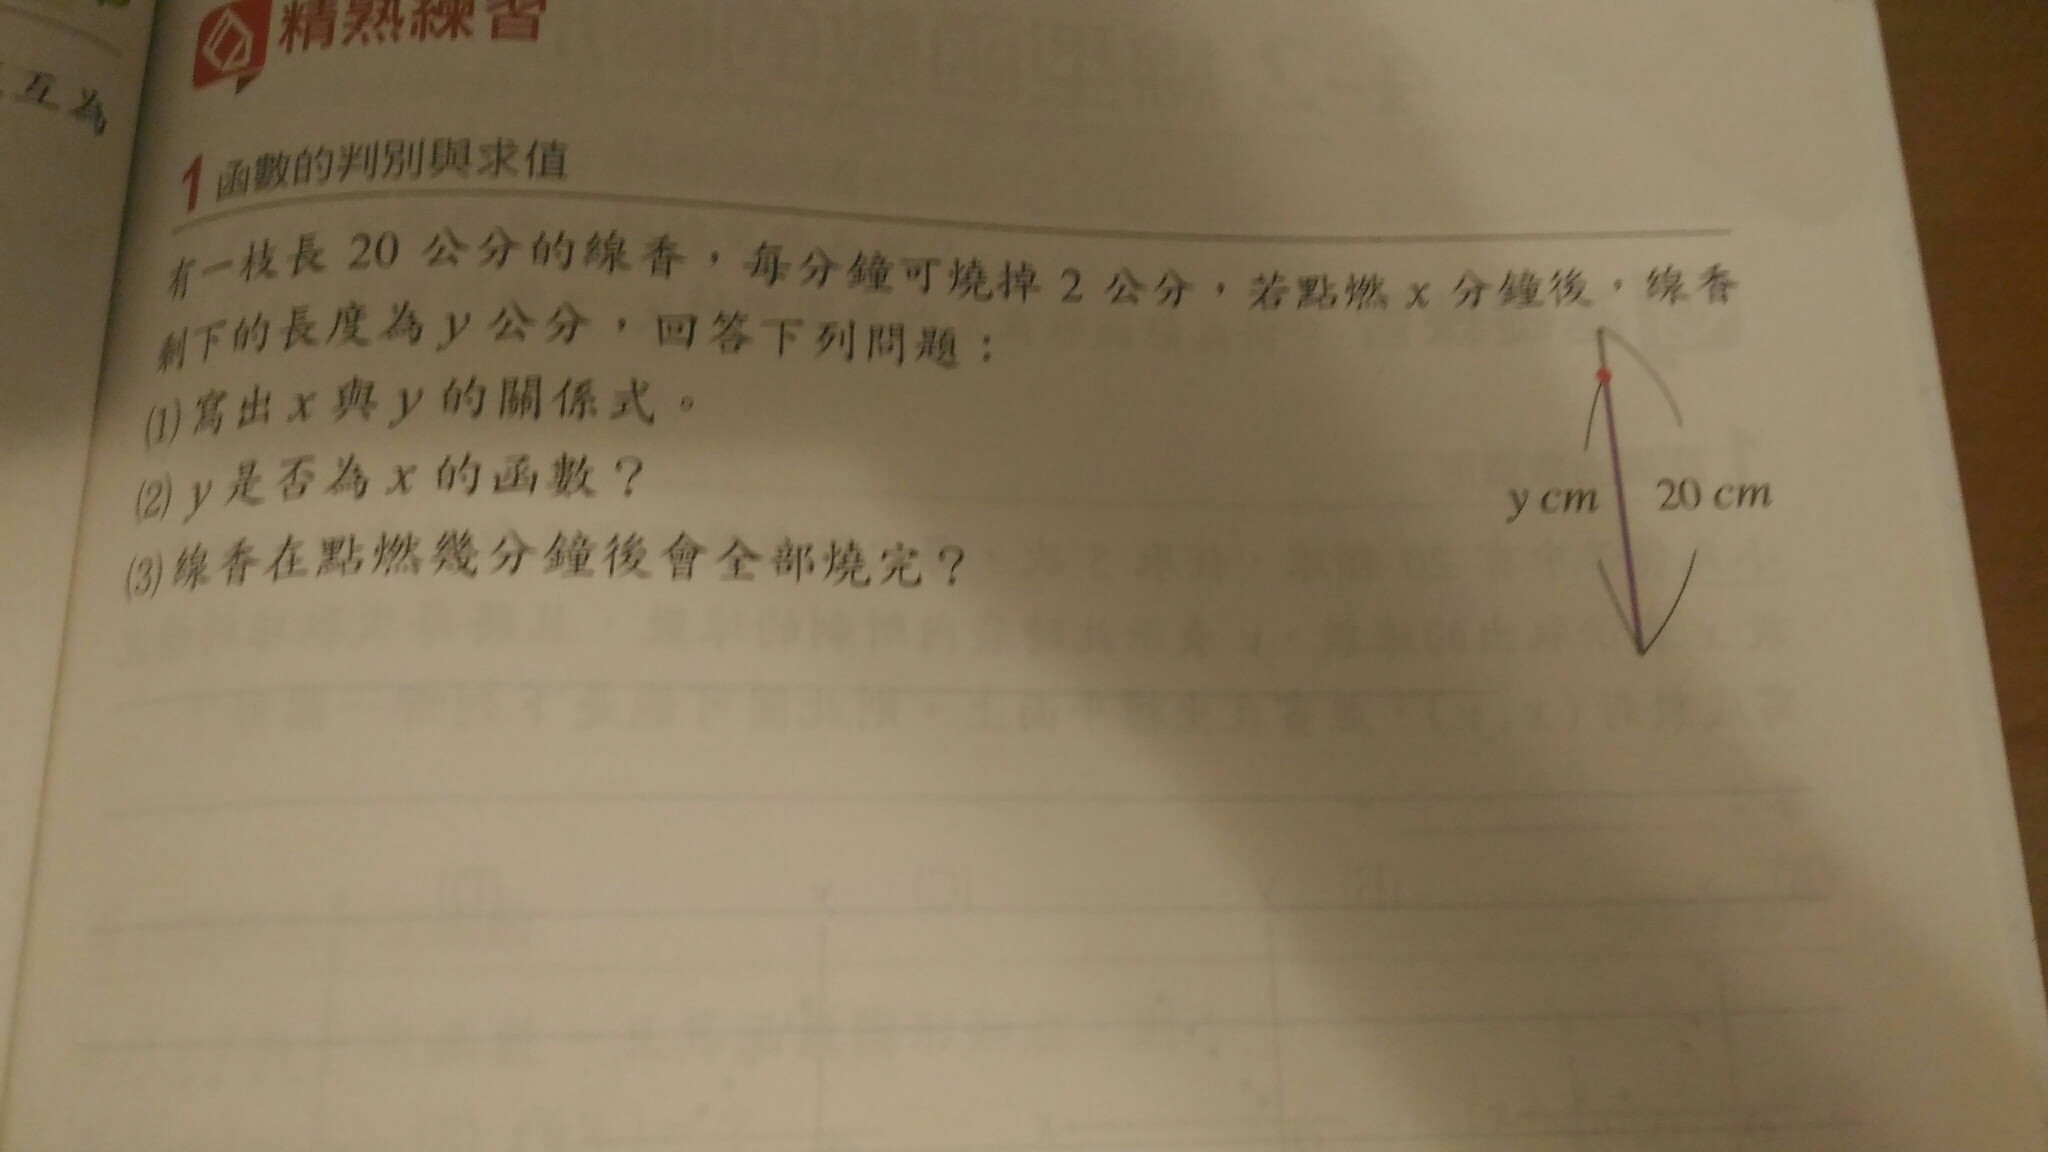 精熟練習
互為
1 函數的判別與求值
有一枝長 20 公分的線香，每分鐘可燒掉 2 公分，若點燃 x 分鐘後，線香
剩下的長度為 y 公分，回答下列問題：
(1) 寫出 x 與 y 的關係式。
(2) y 是否為 x 的函數？
(3) 線香在點燃幾分鐘後會全部燒完？
y cm
20 cm